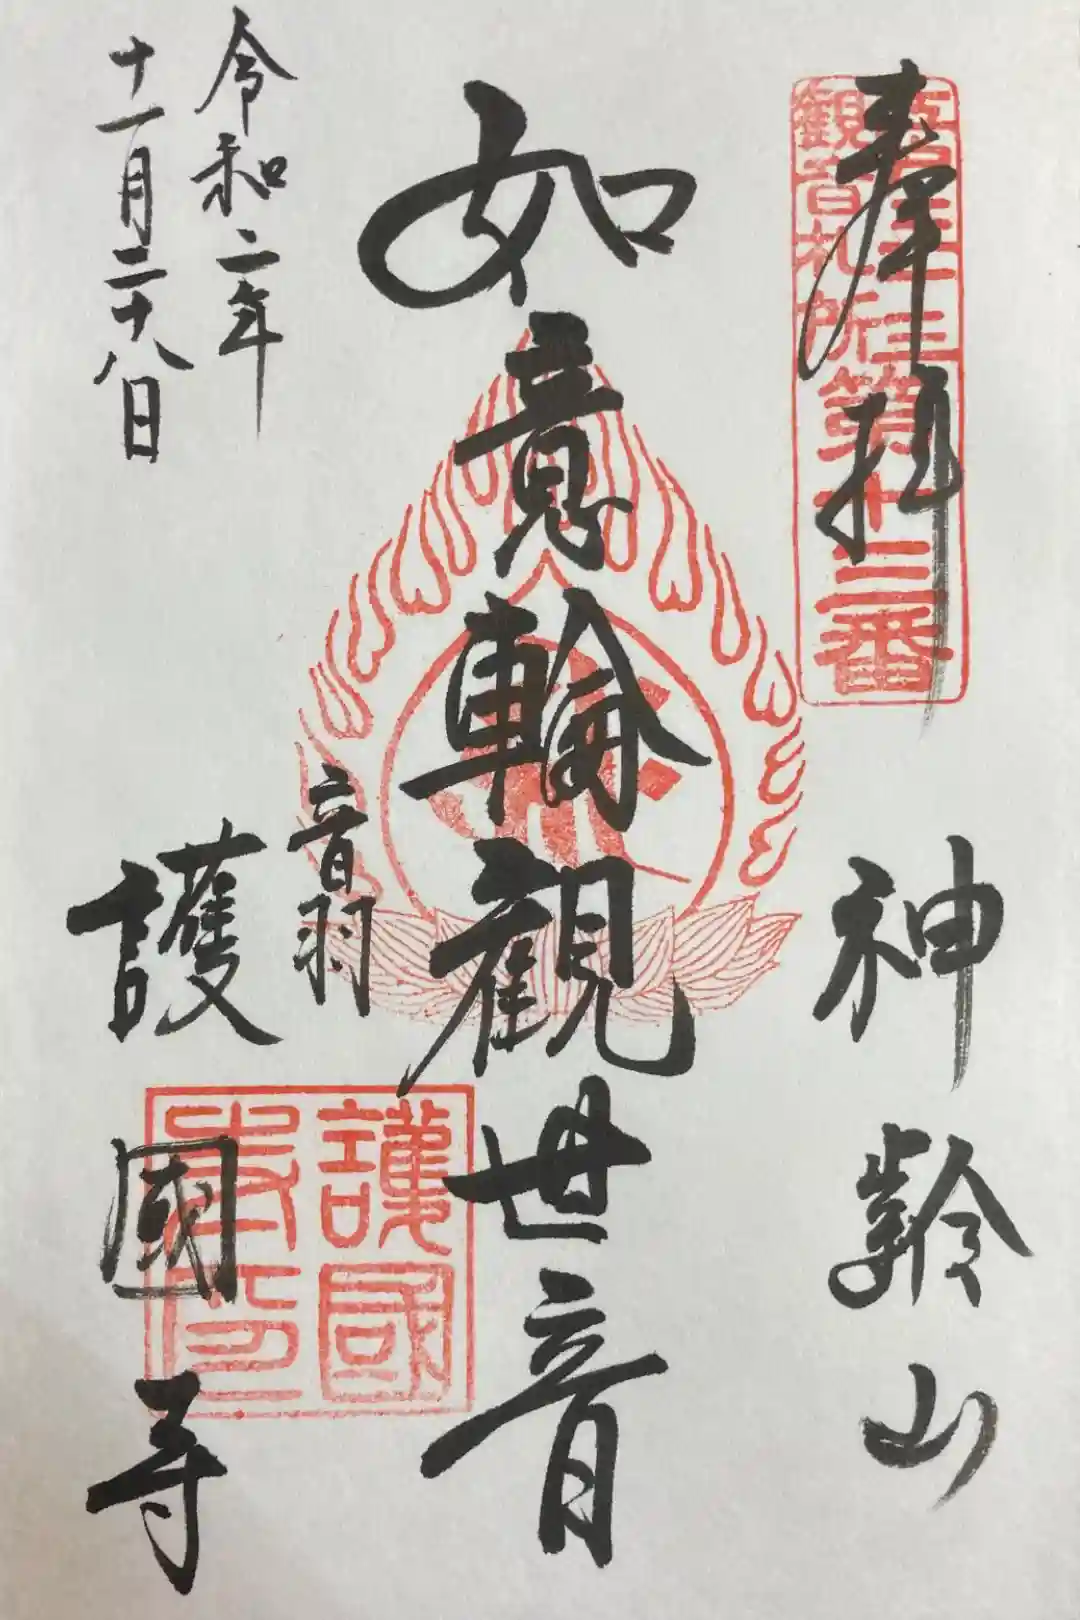 奉拝
観音札所
第十三番
神齢山
如意輪観世音
音羽
護國寺
護國寺印
令和二年
十一月二十八日